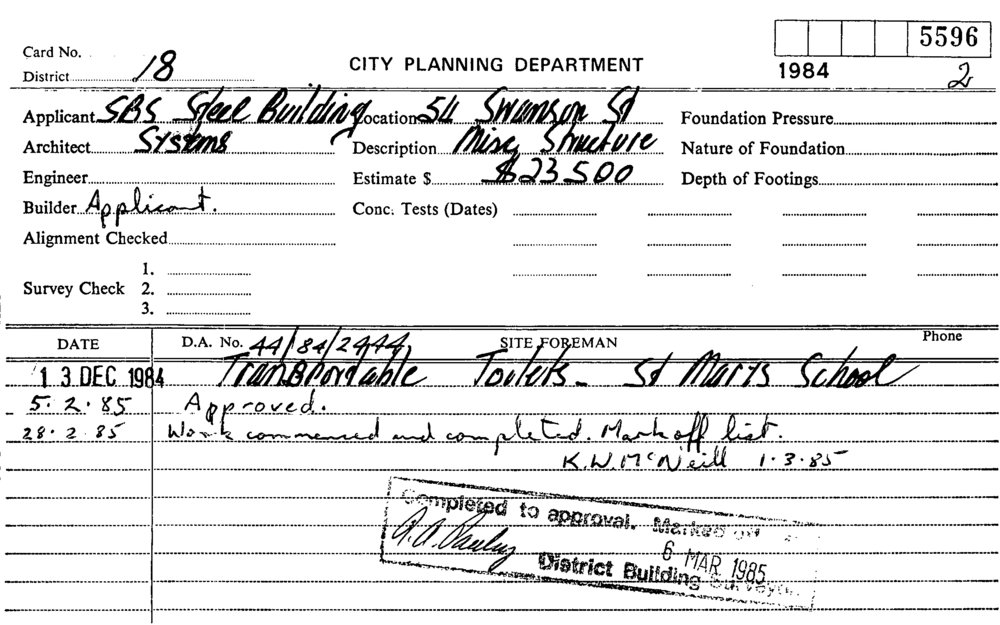 5596
Card No.
1984 2
District 18 CITY PLANNING DEPARTMENT
Applicant SBS Steel Building Location 54 Swanson St Foundation Pressure
Architect Systems Description Misc Structure Nature of Foundation
Engineer Estimate $ $23500 Depth of Footings
Builder Applicant. Conc. Tests (Dates)
Alignment Checked
1.
Survey Check 2.
3.
DATE D.A. No. 44/84/2444 SITE FOREMAN Phone
13 DEC 1984 Toilets - St Marys School
5.2.85 Approved.
28.2.85 Work commenced and completed. Mark off list.
K.W. McNeill 1.3.85
Completed to approval. Marked off
6 MAR 1985
District Building Surveyor.